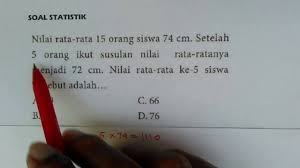 SOAL STATISTIK
Nilai rata-rata 15 orang siswa 74 cm. Setelah
5 orang ikut susulan nilai rata-ratanya
menjadi 72 cm. Nilai rata-rata ke-5 siswa
sebut adalah...
A. C. 66
B. D. 76
5 x 74 = 1110